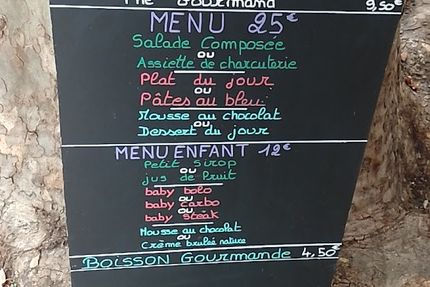 Thé Gourmand 9,50€
MENU 25€
Salade Composée
ou
Assiette de charcuterie
Plat du jour
ou
Pâtes au bleu
Mousse au chocolat
ou
Dessert du jour
MENU ENFANT 12€
Petit Sirop
ou
jus de fruit
baby bolo
ou
baby carbo
ou
baby steak
Mousse au chocolat
ou
Crème brulée nature
BOISSON Gourmande 4,50€